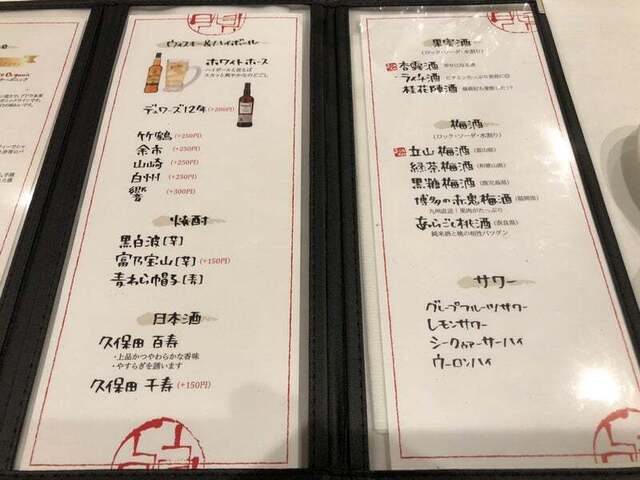 ウィスキー&ハイボール
ホワイトホース
ハイボールと言えば
スカッと爽やかなのどごし
デュワーズ12年 (+200円)
竹鶴 (+250円)
余市 (+250円)
山崎 (+250円)
白州 (+250円)
響 (+300円)
焼酎
黒白波[芋]
富乃宝山[芋] (+150円)
青わら帽子[麦]
日本酒
久保田 百寿
・上品かつやわらかな香味
・やすらぎを誘います
久保田 千寿 (+150円)
果実酒
(ロック・ソーダ・水割り)
杏露酒
・ライチ酒
桂花陳酒
梅酒
(ロック・ソーダ・水割り)
立山梅酒 (富山県)
緑茶梅酒 (和歌山県)
黒糖梅酒 (鹿児島県)
博多の赤鬼梅酒 (福岡県)
九州直送!果肉がたっぷり
あらごし桃酒 (奈良県)
純米酒と桃の相性バツグン
サワー
グレープフルーツサワー
レモンサワー
シークヮーサーハイ
ウーロンハイ